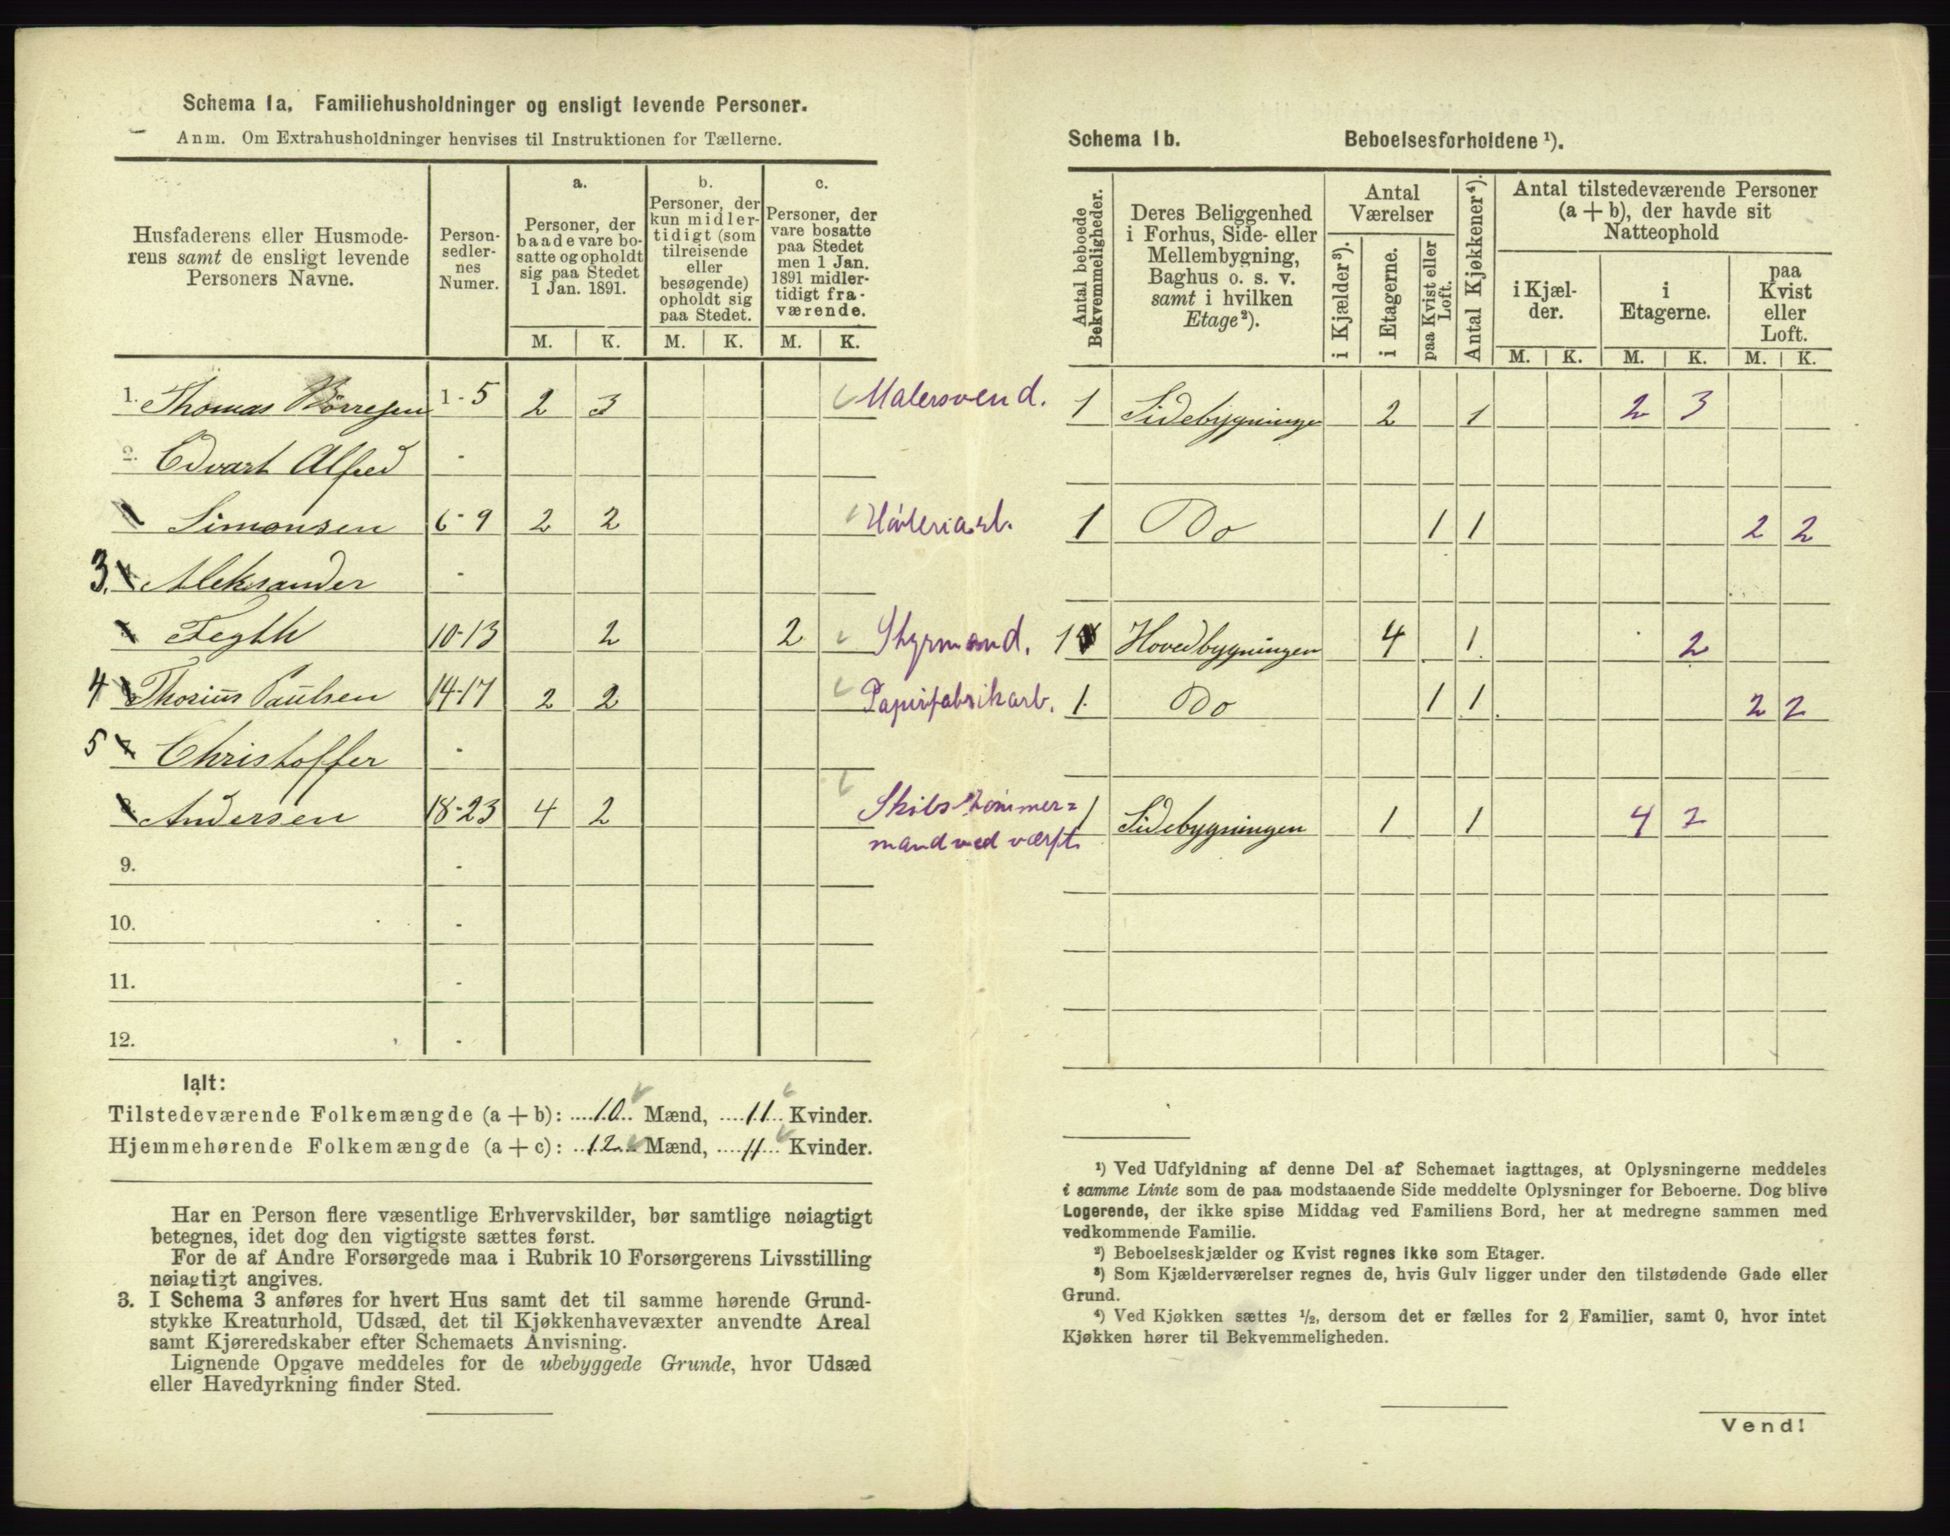 Schema 1a. Familiehusholdninger og ensligt levende Personer.
Anm. Om Extrahusholdninger henvises til Instruktionen for Tællerne.
Husfaderens eller Husmode-
rens samt de ensligt levende
Personers Navne.
Person-
sedler-
nes
Numer.
a.
Personer, der
baade vare bo-
satte og opholdt
sig paa Stedet
1 Jan. 1891.
M. K.
b.
Personer, der
kun midler-
tidigt (som
tilreisende
eller
besøgende)
opholdt sig
paa Stedet.
M. K.
c.
Personer, der
vare bosatte
paa Stedet
men 1 Jan.
1891 midler-
tidigt fra-
værende.
M. K.
1. Thomas Børresen 1-5 2 3 Malersvend.
2. Edvart Alfred -
Simonsen 6-9 2 2
3. Aleksander -
Fegth 10-13 2 2 Styrmand.
4 Thorius Paulsen 14-17 2 2 Papirfabrikarb.
5 Christoffer -
Andersen 18-23 4 2 Skibstømmer=
mand ved værft.
9. -
10. -
11. -
12. -
Ialt:
Tilstedeværende Folkemængde (a + b): 10 Mænd, 11 Kvinder.
Hjemmehørende Folkemængde (a + c): 12 Mænd, 11 Kvinder.
Har en Person flere væsentlige Erhvervskilder, bør samtlige nøiagtigt
betegnes, idet dog den vigtigste sættes først.
For de af Andre Forsørgede maa i Rubrik 10 Forsørgerens Livsstilling
nøiagtigt angives.
3. I Schema 3 anføres for hvert Hus samt det til samme hørende Grund-
stykke Kreaturhold, Udsæd, det til Kjøkkenhavevæxter anvendte Areal
samt Kjøreredskaber efter Schemaets Anvisning.
Lignende Opgave meddeles for de ubebyggede Grunde, hvor Udsæd
eller Havedyrkning finder Sted.
Schema 1b. Beboelsesforholdene ¹).
Antal beboede
Bekvemmeligheder.
Deres Beliggenhed
i Forhus, Side- eller
Mellembygning,
Baghus o. s. v.
samt i hvilken
Etage²).
Antal
Værelser
i Kjælder³).
i Etagerne.
paa Kvist eller
Loft.
Antal Kjøkkener⁴).
Antal tilstedeværende Personer
(a + b), der havde sit
Natteophold
i Kjæl-
der.
i
Etagerne.
paa
Kvist
eller
Loft.
M. K. M. K. M. K.
1 Sidebygningen 2 1 2 3
1 Do 1 1 2 2
1 Hovedbygningen 4 1 2
1 Do 1 1 2 2
1 Sidebygningen 1 1 4 2
¹) Ved Udfyldning af denne Del af Schemaet iagttages, at Oplysningerne meddeles
i samme Linie som de paa modstaaende Side meddelte Oplysninger for Beboerne. Dog blive
Logerende, der ikke spise Middag ved Familiens Bord, her at medregne sammen med
vedkommende Familie.
²) Beboelseskjælder og Kvist regnes ikke som Etager.
³) Som Kjælderværelser regnes de, hvis Gulv ligger under den tilstødende Gade eller
Grund.
⁴) Ved Kjøkken sættes ½, dersom det er fælles for 2 Familier, samt 0, hvor intet
Kjøkken hører til Bekvemmeligheden.
Vend!